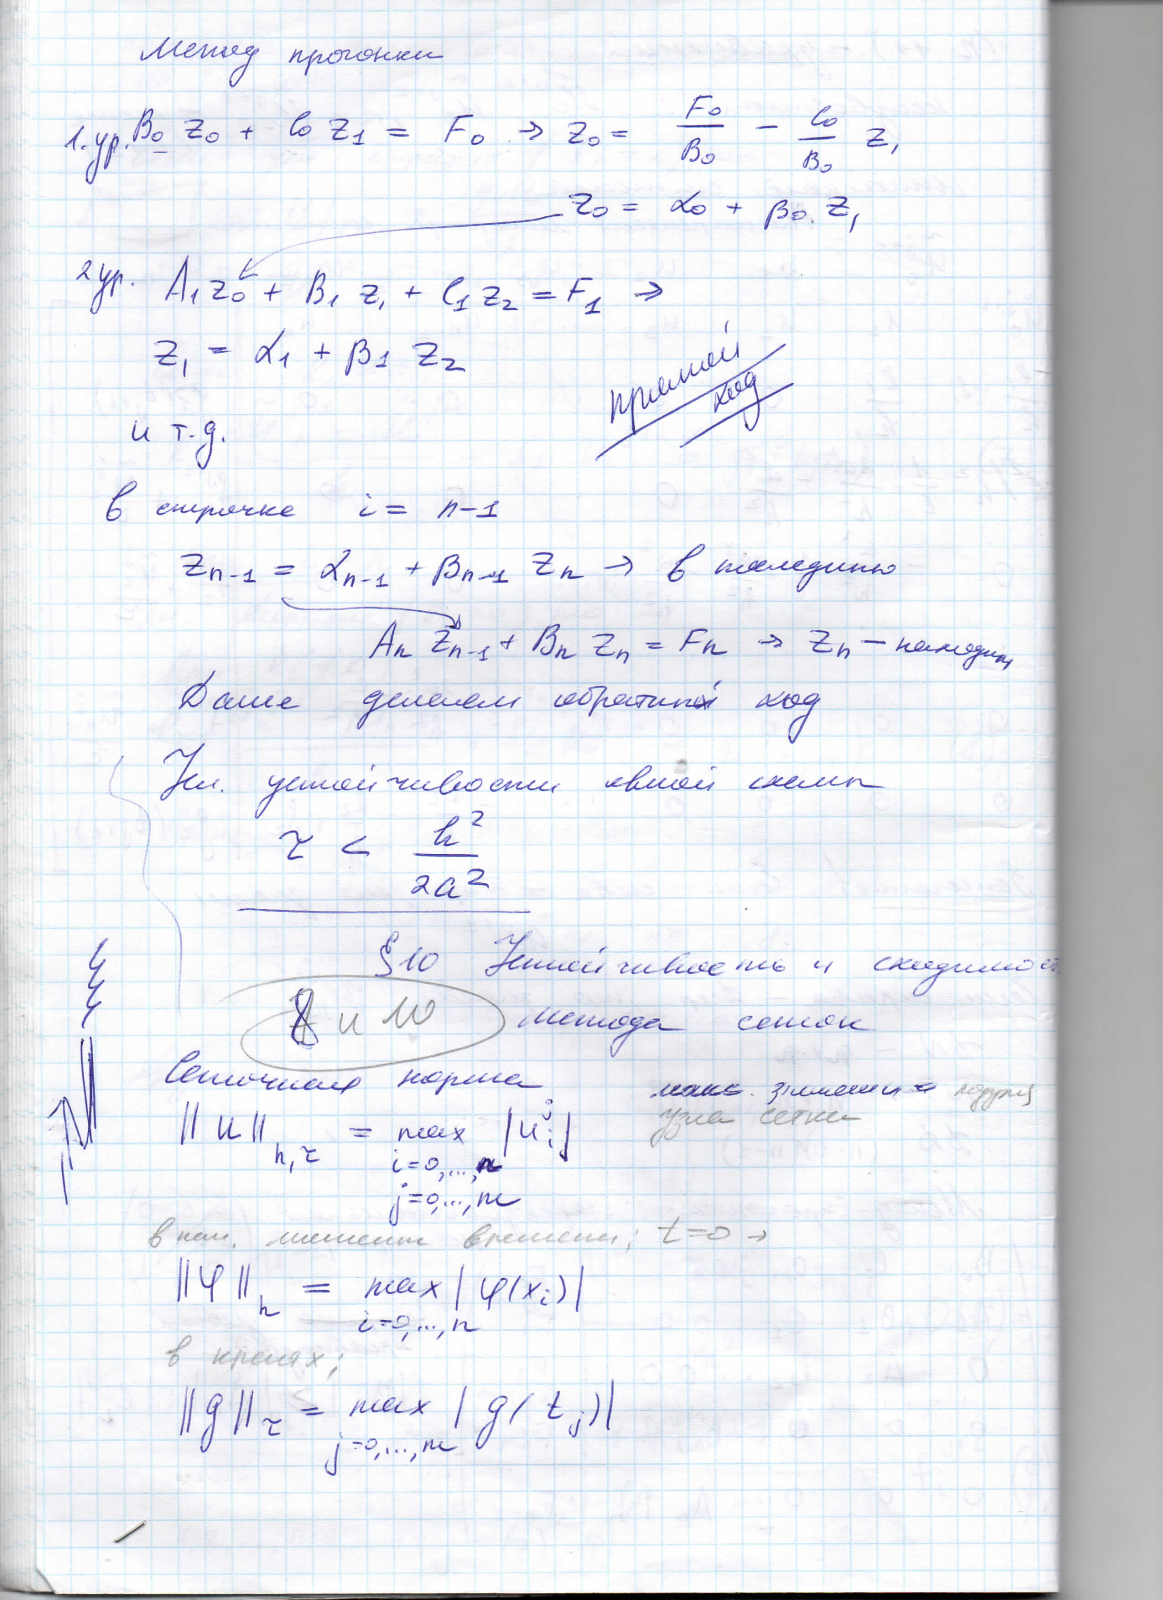 Метод прогонки
1.ур. B₀ z₀ + C₀ z₁ = F₀ → z₀ = F₀/B₀ − C₀/B₀ z₁
z₀ = α₀ + β₀ z₁
2 ур. A₁ z₀ + B₁ z₁ + C₁ z₂ = F₁ →
z₁ = α₁ + β₁ z₂
прямой
ход
и т.д.
в строчке i = n-1
z_{n-1} = α_{n-1} + β_{n-1} z_n → в последнюю
A_n z_{n-1} + B_n z_n = F_n → z_n – находим
Далее делаем обратный ход
Усл. устойчивости явной схемы
τ < h²/2a²
§10 Устойчивость и сходимость
8 и 10 метода сеток
Сеточная норма
макс. значение модуля
узла сетки
||u||_{h,τ} = max |u_i^j|
i=0,...,n
j=0,...,m
в нач. момент времени; t=0 →
||φ||_h = max |φ(x_i)|
i=0,...,n
в краях;
||g||_τ = max |g(t_j)|
j=0,...,m